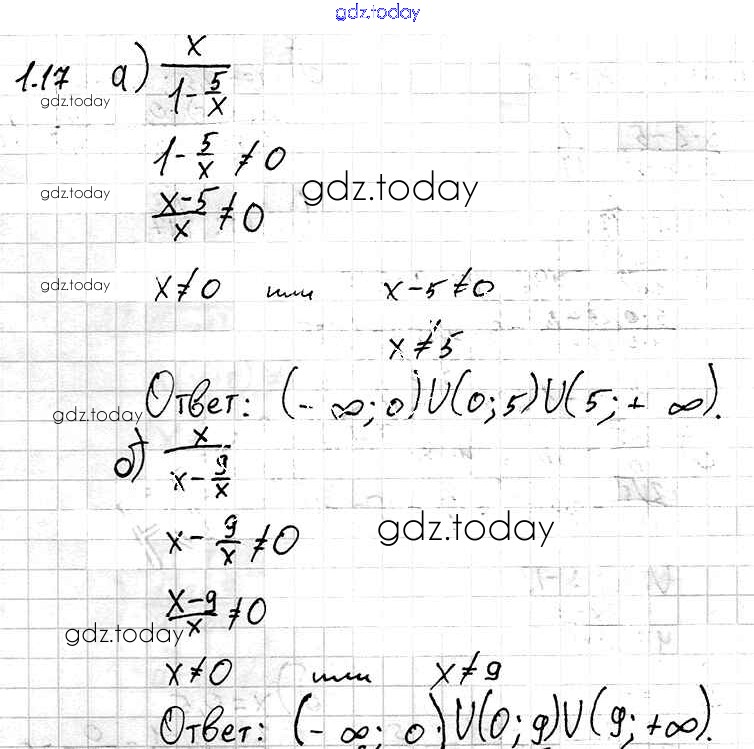 gdz.today
1.17 а) x/(1-5/x)
gdz.today
1-5/x ≠0
gdz.today gdz.today
(x-5)/x ≠0
gdz.today x≠0 или x-5≠0
x≠5
gdz.today Ответ: (-∞;0)U(0;5)U(5;+∞).
б) x/(x-9/x)
x-9/x ≠0 gdz.today
(x-9)/x ≠0
gdz.today
x≠0 или x≠9
Ответ: (-∞;0)U(0;9)U(9;+∞).